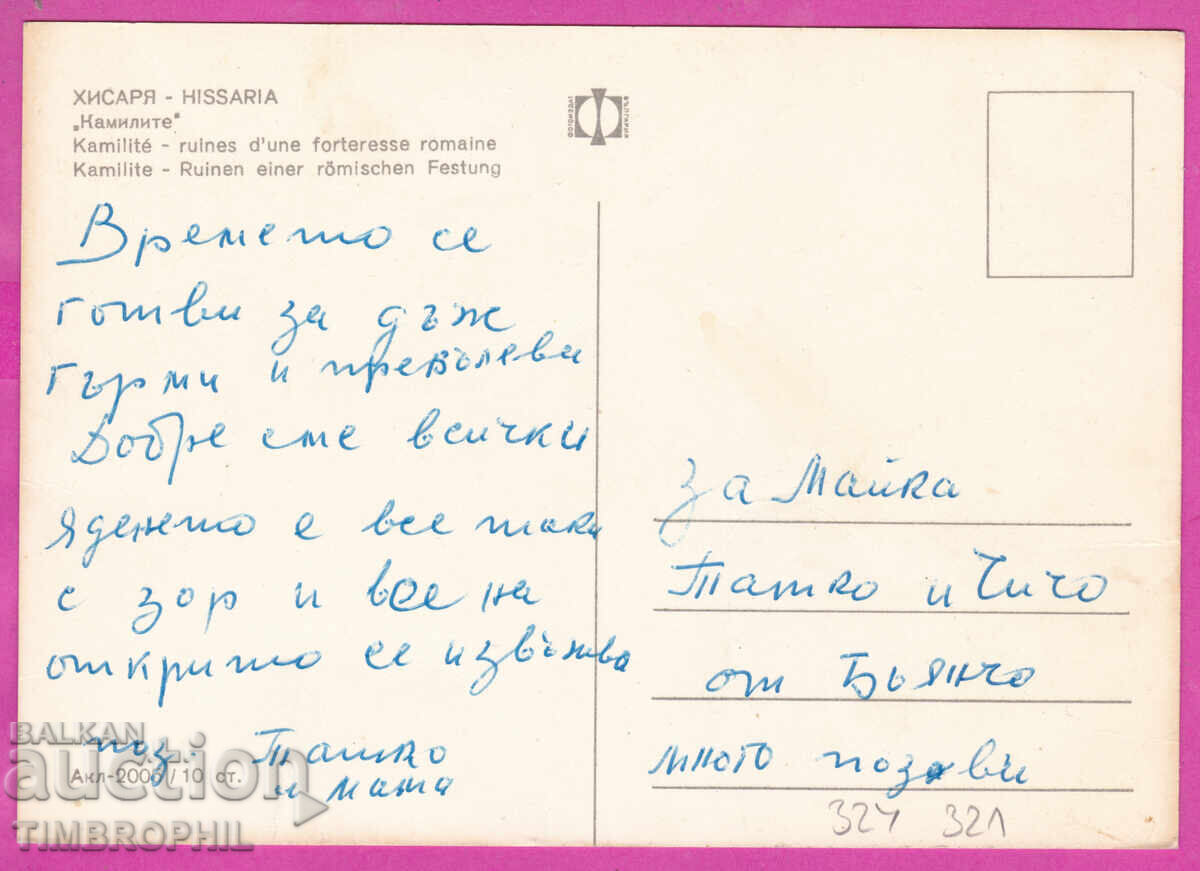 ХИСАРЯ - HISSARIA
„Камилите"
Kamilité - ruines d'une forteresse romaine
Kamilite - Ruinen einer römischen Festung
ФОТОИЗДАТ
БЪЛГАРИЯ
Времето се
готви за дъж
гърми и
Добре сме всички
яденето е все така
с зор и все на
открито се
поз. Татко
и мама
Акл-2006/10 ст.
за Майка
Татко и Чичо
от Бьянчо
много поздви
324 321
BALKAN
auction
TIMBROPHIL